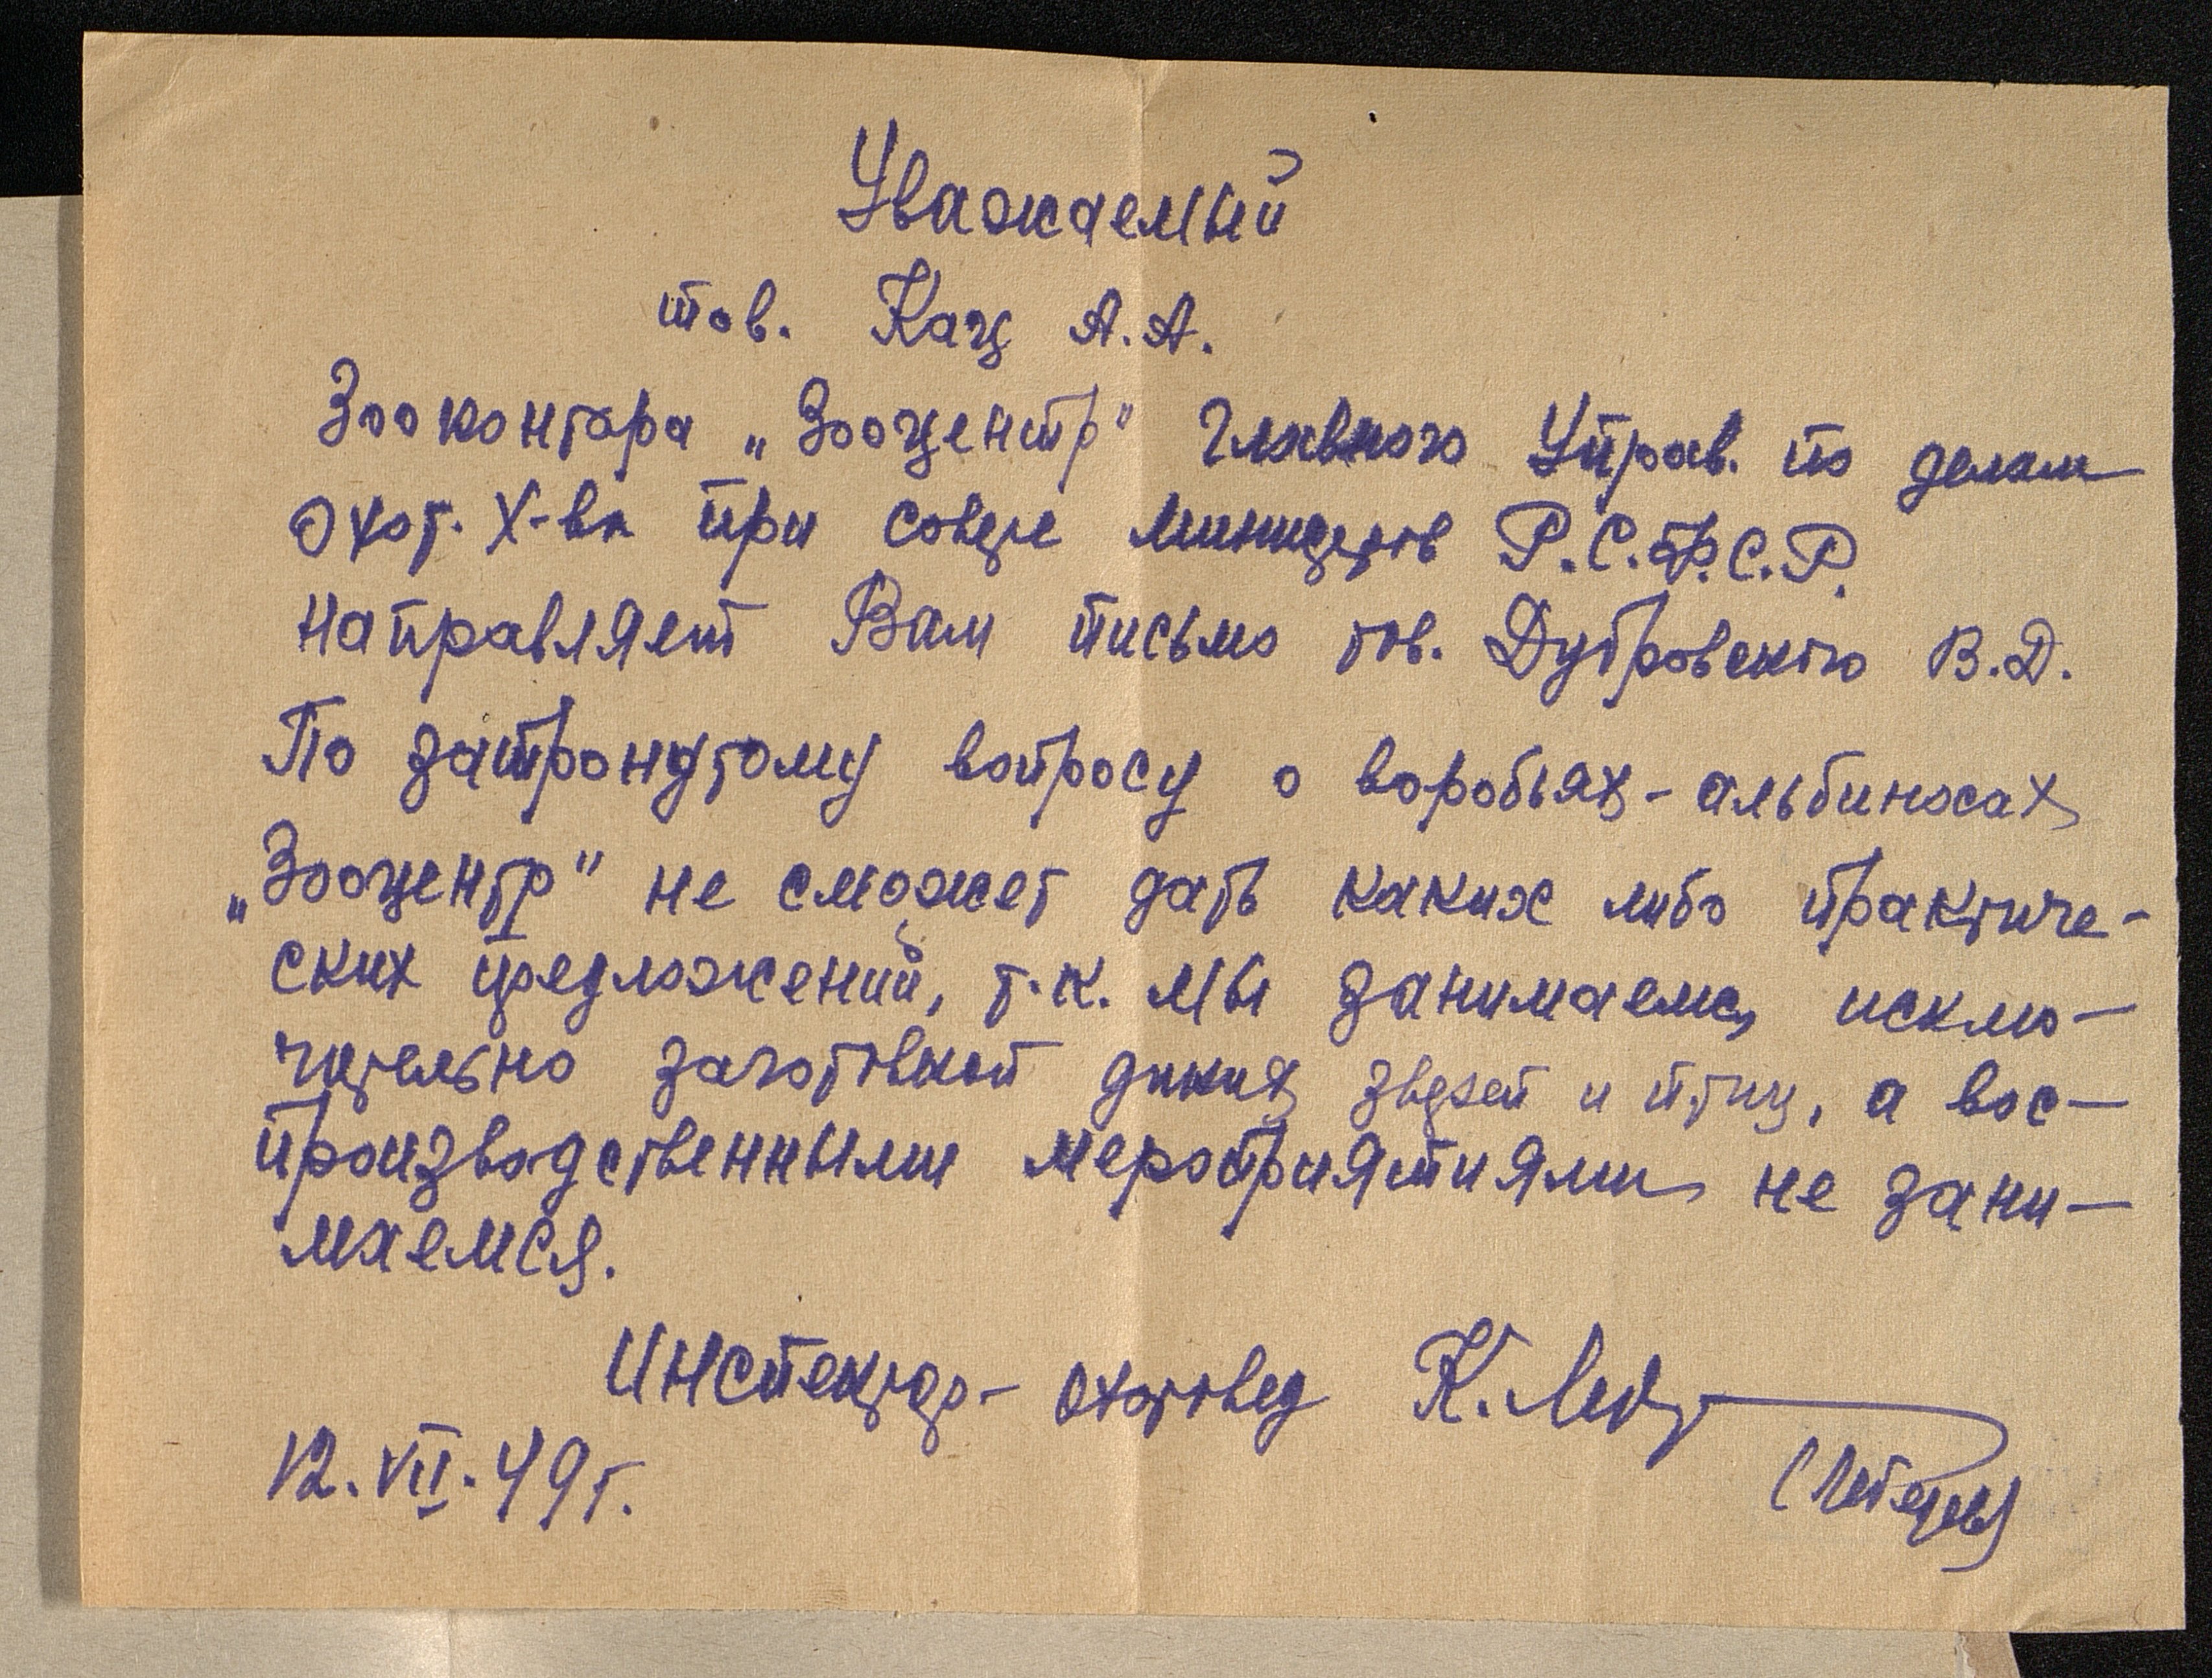 Уважаемый
тов. Кац А.А.
Зооконтора „Зооцентр" Главного Управ. по делам
охот. х-ва при совете министров Р.С.Ф.С.Р.
направляет Вам письмо тов. Дубровского В.Д.
По затронутому вопросу о воробьях-альбиносах
„Зооцентр" не сможет дать каких либо практиче-
ских предложений, т.к. мы занимаемся исклю-
чительно заготовкой диких зверей и птиц, а вос-
производственными мероприятиями не зани-
маемся.
Инспектор-охотовед К.
12.VII.49 г.